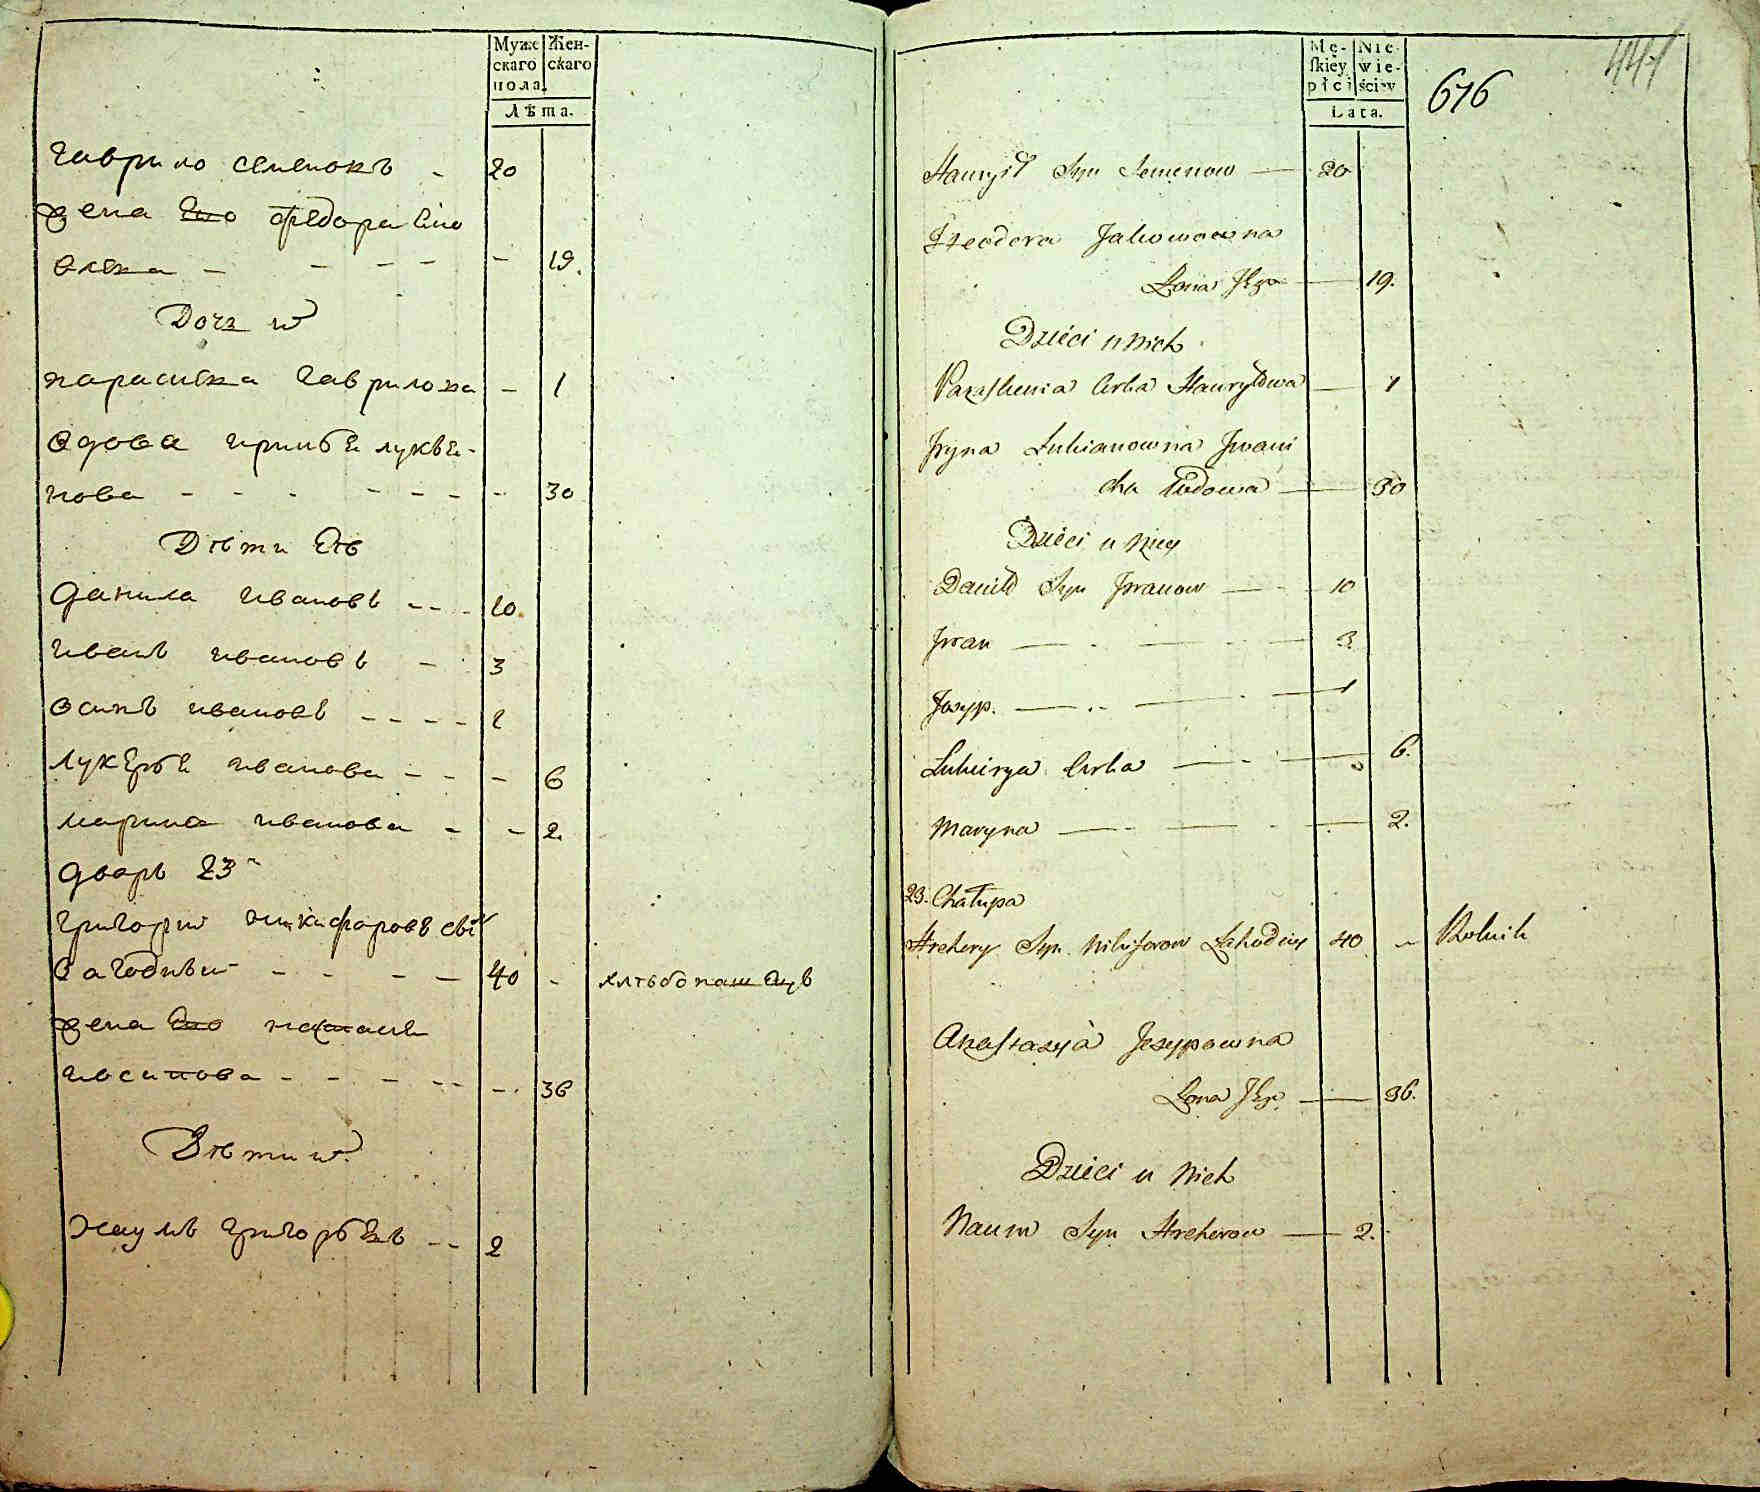 Муже
скаго
пола.
Жен-
скаго
Лѣта.
гаврило семеновъ - 20
жена Его федора Яко
влева - - - - - 19.
Дочь их
парасшка гаврилова - 1
вдова ирина лукья-
нова - - - - - - - 30
Дѣти Еѣ
данила ивановъ - - - 10.
иванъ ивановъ - 3
осипъ ивановъ - - - - 1
лукерья иванова - - - 6
марина иванова - - 2.
дворъ 23й
григорий никифоровъ
Загодный - - - - 40 - хлѣбопашецъ
жена Его настася
иосипова - - - - - - 36
Дѣти их
наумъ григорьевъ - - 2
Mę-
skiey
płci
Nie
wie-
ściey
Lata.
676
441
Hauryił Syn Semenow — 20
Fzeodora Jakowowna
Żona Jego — 19.
Dzieci u nich
Paraskewia Córka Hauryłowa — 1
Jryna Lukianowna Jwani
cha Wdowa — 30
Dzieci u niey
Daniło Syn Jwanow — 10
Jwan — 3
Josyp. — 1
Lukirya Córka — 6.
Maryna — 2.
23. Chałupa
Hrehory Syn Nikiforow Zahodny 40 - Rolnik
Anastazya Josypowna
Żona Jego — 36.
Dzieci u nich
Naum Syn Hrehorow — 2.